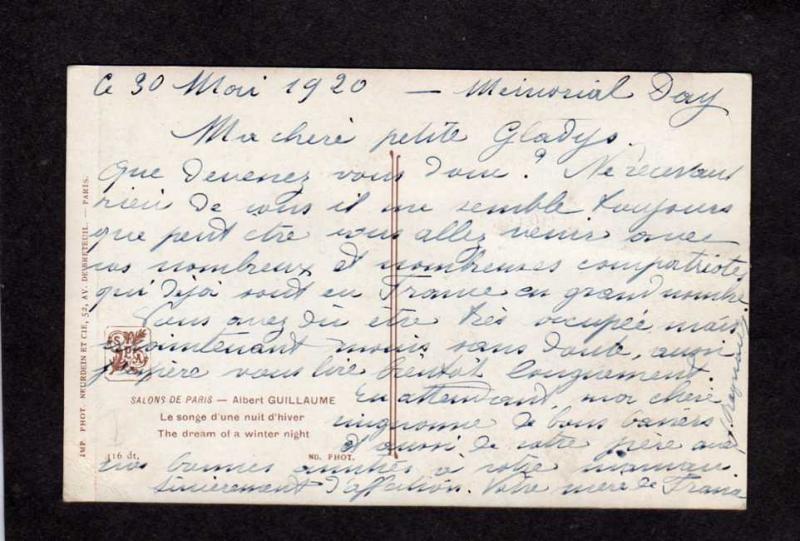 Ce 30 Mai 1920 — Memorial Day
Ma chère petite Gladys.
Que devenez vous donc? Ne recevant
rien de vous il me semble toujours
que peut être vous allez venir avec
vos nombreux et nombreuses compatriotes
qui déjà sont en France en grand nombre
Vous avez dû être très occupée mais
maintenant moins sans doute, aussi
j'espère vous lire bientôt longuement.
En attendant, ma chère
mignonne de bons baisers
d' aussi de votre père avec
nos bonnes amitiés à votre maman
sincèrement d'affection. Votre mère de France
SALONS DE PARIS — Albert GUILLAUME
Le songe d'une nuit d'hiver
The dream of a winter night
116 dt. ND. PHOT.
IMP. PHOT. NEURDEIN ET CIE, 52, AV. DE BRETEUIL. — PARIS.